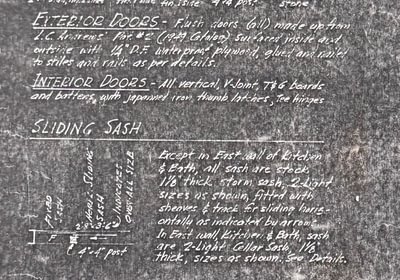 4"x4" post stone
EXTERIOR DOORS - Flush doors (all) made up from
L.C. Andrews' (1949 Catalog) surfaced inside and
outside with 1/4" D.F. waterproof plywood, glued and nailed
to stiles and rails as per details.
INTERIOR DOORS - All vertical, V-Joint, T&G boards
and battens, with japanned iron thumb latches, Tee hinges
SLIDING SASH
Except in East wall of Kitchen
& Bath, all sash are stock,
1 1/8" thick storm sash, 2-Light
sizes as shown, fitted with
sheaves & track for sliding horiz-
ontally as indicated by arrows.
In East wall, Kitchen & Bath, sash
are 2-Light Cellar Sash, 1 1/8"
thick, sizes as shown. See Details.
FIXED
SASH
HORIZ. SLIDING
SASH
INDICATES
OVER-ALL SIZE
F
4"x4" post